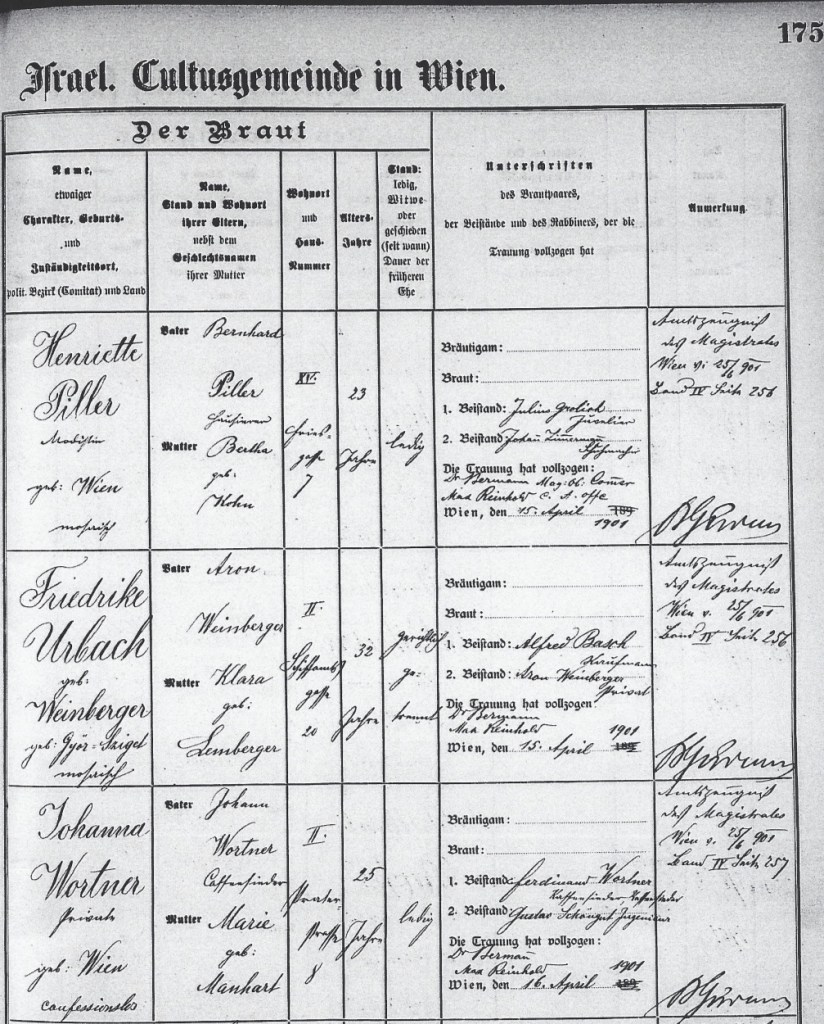 175
Israel. Cultusgemeinde in Wien.
Der Braut
Name,
etwaiger
Charakter, Geburts-
und
Zuständigkeitsort,
polit. Bezirk (Comitat) und Land
Name,
Stand und Wohnort
ihrer Eltern,
nebst dem
Geschlechtsnamen
ihrer Mutter
Wohnort
und
Haus-
Nummer
Alters-
Jahre
Stand:
ledig,
Witwe
oder
geschieden
(seit wann)
Dauer der
früheren
Ehe
Unterschriften
des Brautpaares,
der Beistände und des Rabbiners, der die
Trauung vollzogen hat
Anmerkung
Henriette
Piller
Modistin
geb: Wien
mosaisch
Vater Bernhard
Piller
Hausierer
Mutter Bertha
geb:
Kohn
XV.
Fries-
gasse
7
23
Jahre
ledig
Bräutigam:
Braut:
1. Beistand: Julius
Juvelier
2. Beistand Johann Zimmermann
Die Trauung hat vollzogen:
Dr Bermann Mag. Ob. Comssr
Max Reinhold
Wien, den 15. April 189
1901
Amtszeugniß
des Magistrates
Wien v. 25/6 901
Band IV Seite 256
Friedrike
Urbach
geb:
Weinberger
geb: Györ-Sziget
mosaisch
Vater Aron
Weinberger
Mutter Klara
geb:
Lemberger
II.
Schiffamts
gasse
20
32
Jahre
gerichtlich
ge-
trennt
Bräutigam:
Braut:
1. Beistand: Alfred Basch
Kaufmann
2. Beistand: Aron Weinberger
Privat
Die Trauung hat vollzogen:
Dr Bermann
Max Reinhold 1901
Wien, den 15. April 189
Amtszeugniß
des Magistrates
Wien v. 25/6 901
Band IV Seite 256
Johanna
Wortner
Private
geb: Wien
confessionslos
Vater Johann
Wortner
Caffeesieder
Mutter Marie
geb:
Manhart
II.
Prater-
strasse
8
25
Jahre
ledig
Bräutigam:
Braut:
1. Beistand: Ferdinand Wortner
Kaffeesieder
2. Beistand Gustav Schöngut Ingenieur
Die Trauung hat vollzogen:
Dr Bermann
Max Reinhold 1901
Wien, den 16. April 189
Amtszeugniß
des Magistrates
Wien v. 25/6 901
Band IV Seite 257